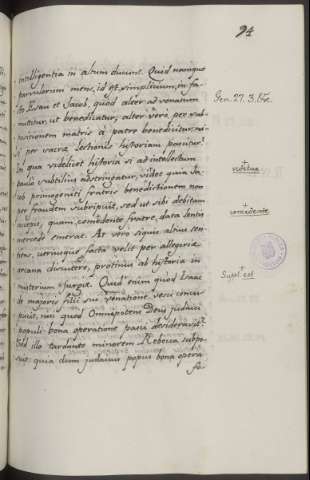 94
intelligentia in altum ducunt. Quid namque
parvulorum mens, id est, simplicium, in fa-
cto Esau et Jacob, quod alter ad venatum
mittitur, ut benedicatur, alter vero per sub-
stitutionem matris à patre benedicitur, ni-
si per sacræ lectionis historiam pascitur?
In qua videlicet historia si ad intellectum
paulo subtilius adstringatur, videt quia Ja-
cob primogeniti fratris benedictionem non
per fraudem subripuit, sed ut sibi debitam
accepit, quam, concedente fratre, data lentis
mercede emerat. At vero siquis altius sen-
tiens, utriusque facta velit per allegoriæ
arcana discutere, protinus ab historia in
mysterium surgit. Quid enim quod Isaac
de majoris filii sui venatione vesci concu-
pivit, nisi quod Omnipotens Deus judaici
populi bona operatione pasci desideravit?
Sed illo tardante minorem Rebecca suppo-
suit: quia dum judaicus populus bona opera
Gen. 27. 3.
concedente
Suplt. est